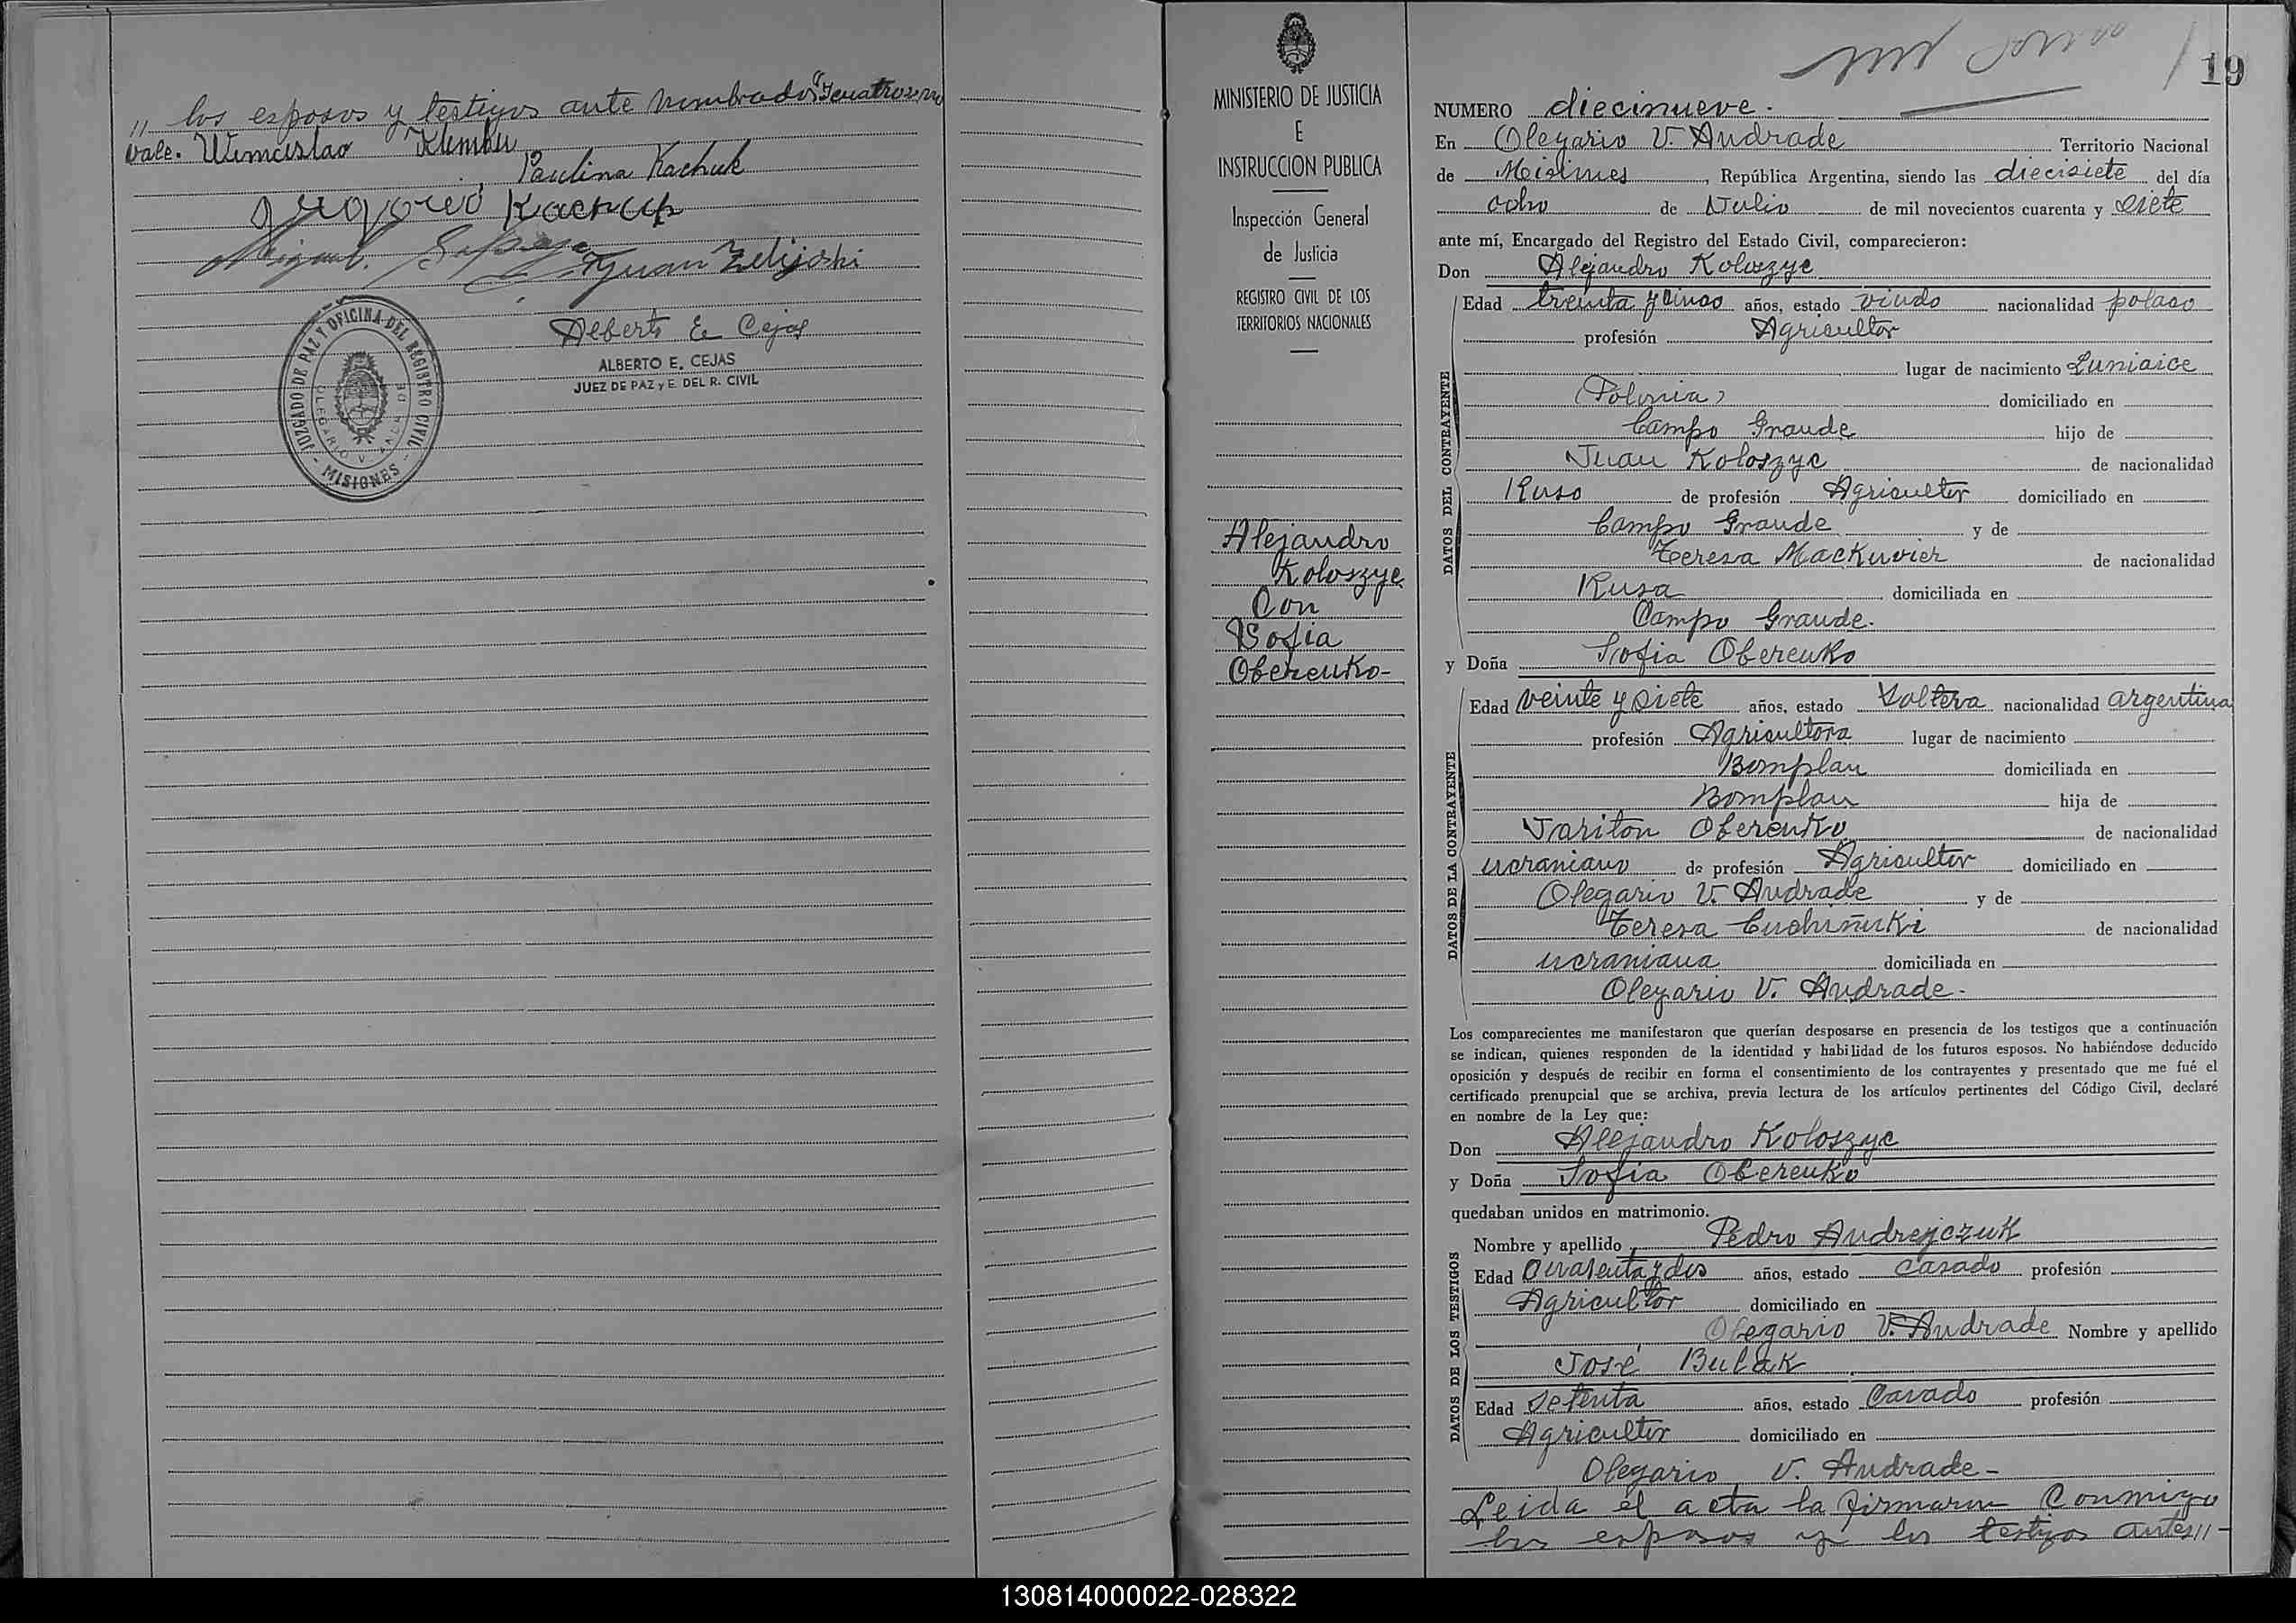 ,, los esposos y testigos ante nombrados
vale. Wenceslao
Paulina Kachuk
Gregorio Kachuk
Miguel
Juan
Alberto E Cejas
ALBERTO E. CEJAS
JUEZ DE PAZ y E. DEL R. CIVIL
JUZGADO DE PAZ Y OFICINA DEL REGISTRO CIVIL
OLEGARIO V. ANDRADE
- MISIONES -
MINISTERIO DE JUSTICIA
E
INSTRUCCION PUBLICA
Inspección General
de Justicia
REGISTRO CIVIL DE LOS
TERRITORIOS NACIONALES
Alejandro
Koloszyc
Con
Sofia
Oberenko-
19
NUMERO diecinueve.
En Olegario V. Andrade Territorio Nacional
de Misiones, República Argentina, siendo las diecisiete del día
ocho de Julio de mil novecientos cuarenta y siete
ante mí, Encargado del Registro del Estado Civil, comparecieron:
Don Alejandro Koloszyc
DATOS DEL CONTRAYENTE
Edad treinta y cinco años, estado viudo nacionalidad polaco
profesión Agricultor
lugar de nacimiento Luniaice
(Polonia) domiciliado en
Campo Grande hijo de
Juan Koloszyc de nacionalidad
Ruso de profesión Agricultor domiciliado en
Campo Grande y de
Teresa Mackuvier de nacionalidad
Rusa domiciliada en
Campo Grande.
y Doña Sofia Oberenko
DATOS DE LA CONTRAYENTE
Edad veinte y siete años, estado Soltera nacionalidad argentina
profesión Agricultora lugar de nacimiento
Bomplan domiciliada en
Bomplan hija de
Jariton Oberenko de nacionalidad
ucraniano de profesión Agricultor domiciliado en
Olegario V. Andrade y de
Teresa Cuchiñuki de nacionalidad
ucraniana domiciliada en
Olegario V. Andrade.
Los comparecientes me manifestaron que querían desposarse en presencia de los testigos que a continuación
se indican, quienes responden de la identidad y habilidad de los futuros esposos. No habiéndose deducido
oposición y después de recibir en forma el consentimiento de los contrayentes y presentado que me fué el
certificado prenupcial que se archiva, previa lectura de los artículos pertinentes del Código Civil, declaré
en nombre de la Ley que:
Don Alejandro Koloszyc
y Doña Sofia Oberenko
quedaban unidos en matrimonio.
DATOS DE LOS TESTIGOS
Nombre y apellido Pedro Andrejczuk
Edad Cuarenta y dos años, estado Casado profesión
Agricultor domiciliado en
Olegario V. Andrade Nombre y apellido
José Bulak
Edad Setenta años, estado Casado profesión
Agricultor domiciliado en
Olegario V. Andrade-
Leida el acta la firmaron Conmigo
los esposos y los testigos antes,,-
130814000022-028322